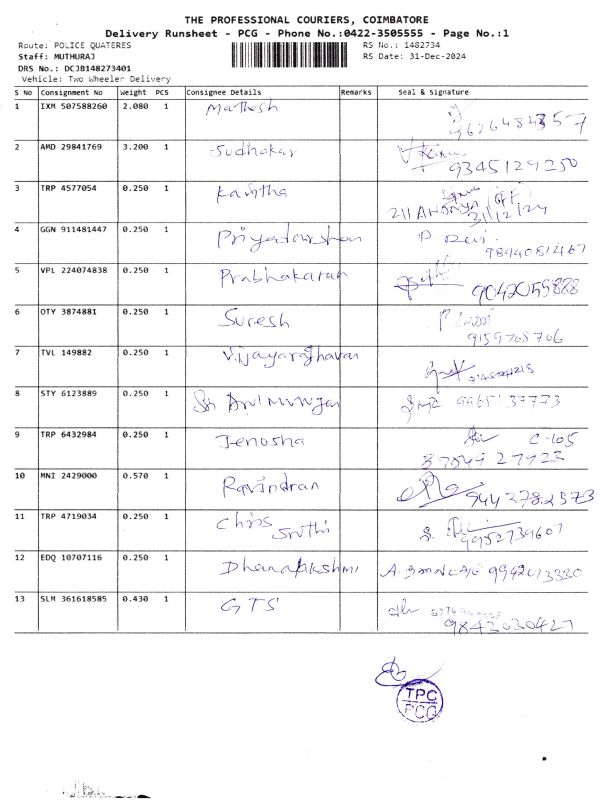 THE PROFESSIONAL COURIERS, COIMBATORE
Delivery Runsheet - PCG - Phone No.:0422-3505555 - Page No.:1
Route: POLICE QUATERES RS No.: 1482734
Staff: MUTHURAJ RS Date: 31-Dec-2024
DRS No.: DCJB148273401
Vehicle: Two Wheeler Delivery
S No Consignment No Weight PCS Consignee Details Remarks Seal & Signature
1 IXM 507588260 2.080 1 Mathesh
2 AMD 29841769 3.200 1 Sudhakar
9345129250
3 TRP 4577054 0.250 1 Kavitha
31/12/24
4 GGN 911481447 0.250 1 Priyadarshan
9894081467
5 VPL 224074838 0.250 1 Prabhakaran
9042055888
6 OTY 3874881 0.250 1 Suresh
9159708706
7 TVL 149882 0.250 1 Vijayaraghavan
8 STY 6123889 0.250 1
9 TRP 6432984 0.250 1 Jenosha C-105
10 MNI 2429000 0.570 1 Ravindran
9443782573
11 TRP 4719034 0.250 1 Chris
9952739607
12 EDQ 10707116 0.250 1 Dhanalakshmi 9942013330
13 SLM 361618585 0.430 1 GTS
9842030427
TPC
PCG